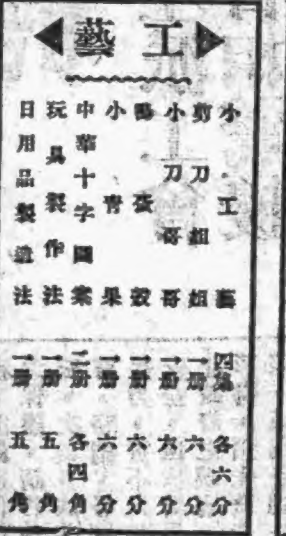 工藝
小工藝 四 各六分
剪刀姐姐 一冊 六分
小刀哥哥 一冊 六分
鴨蛋殼 一冊 六分
小青果 一冊 六分
中華十字圖案 二冊 各四角
玩具製作法 一冊 五角
日用品製造法 一冊 五角